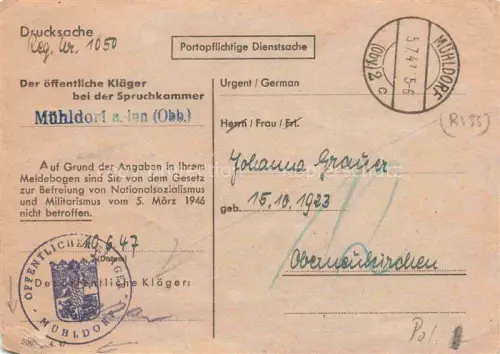 Drucksache
Reg. Nr. 1050
Portopflichtige Dienstsache
MÜHLDORF
5.7.47. 5-6
(Oby) 2
c
Der öffentliche Kläger
bei der Spruchkammer
Mühldorf a. Inn (Obb.)
Auf Grund der Angaben in Ihrem
Meldebogen sind Sie von dem Gesetz
zur Befreiung von Nationalsozialismus
und Militarismus vom 5. März 1946
nicht betroffen.
10.6.47
(Datum)
Der öffentliche Kläger:
ÖFFENTLICHER KLÄGER
MÜHLDORF
Urgent / German
(RISS)
Herrn / Frau / Frl.
Johanna Grauer
geb. 15.10.1923
Oberneukirchen
Pol.